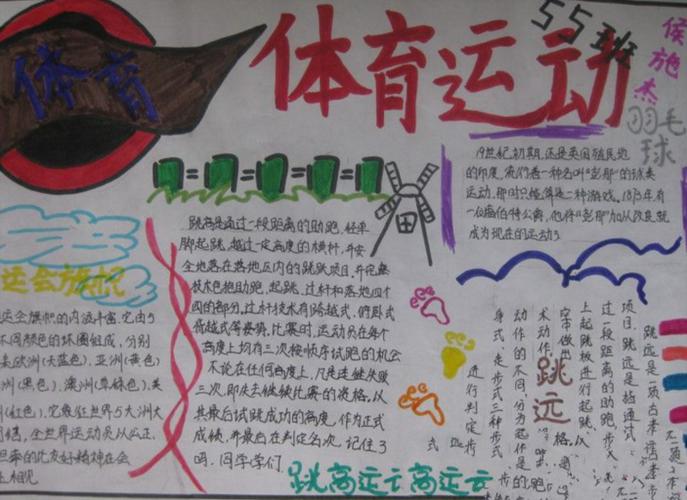 体育
体育运动
55班
侯施杰
羽毛球
19世纪初期,还是英国殖民地
的印度,流行着一种名叫"彭那"的球类
运动,那时只能算是一种游戏。1873年有
一位鲍伯特公爵,他将"彭那"加以改良,就
成为现在的运动
跳高是通过一段距离的助跑,轻乎
脚起跳,越过一定高度的横杆,并安
全地落在落地区内的跳跃项目。并完整
技术包括助跑,起跳、过杆和落地四个
的部分。过杆技术有跨越式,俯卧
等姿势,比赛时,运动员在每个
高度上均有三次按顺序试跑的机会
不论在任何高度上,凡是连继失败
三次,即失去继续比赛的资格,以
其最后试跳成功的高度,作为正式
成帧,并最后在判定名次。记住了
吗,同学学们
跳高运亍高运云
运会旗帜
运会旗帜的内涵丰富,它由5
不同颜色的环圈组成,分别
欧洲(天蓝色),亚洲(黄色)
洲(黑色),澳洲(草绿色),美
(红色),它象征世界5大洲大
团结,全世界运动员从公正、
坦率的比友好精神在会
上相见
跳远
跳远是一项古来
项目,跳远是指通过
过一段距离的助跑步
上起跳板进行起跳,从
空中做出
术动作,
动作的不同,分为起作是的跑
身式,走步式三种步式
进行判定步
式